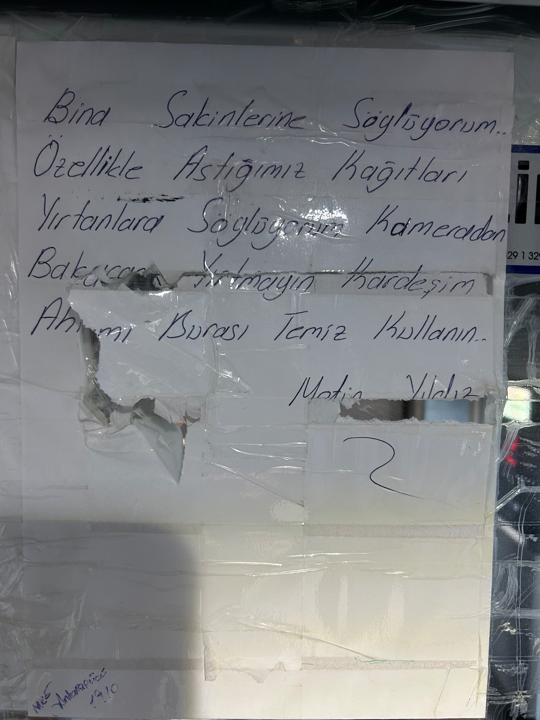 Bina Sakinlerine Söylüyorum..
Özellikle Astığımız Kağıtları
Yırtanlara Söylüyorum Kameradan
Yırtmayın Kardeşim
Burası Temiz Kullanın..
Metin Yıldız
17.10